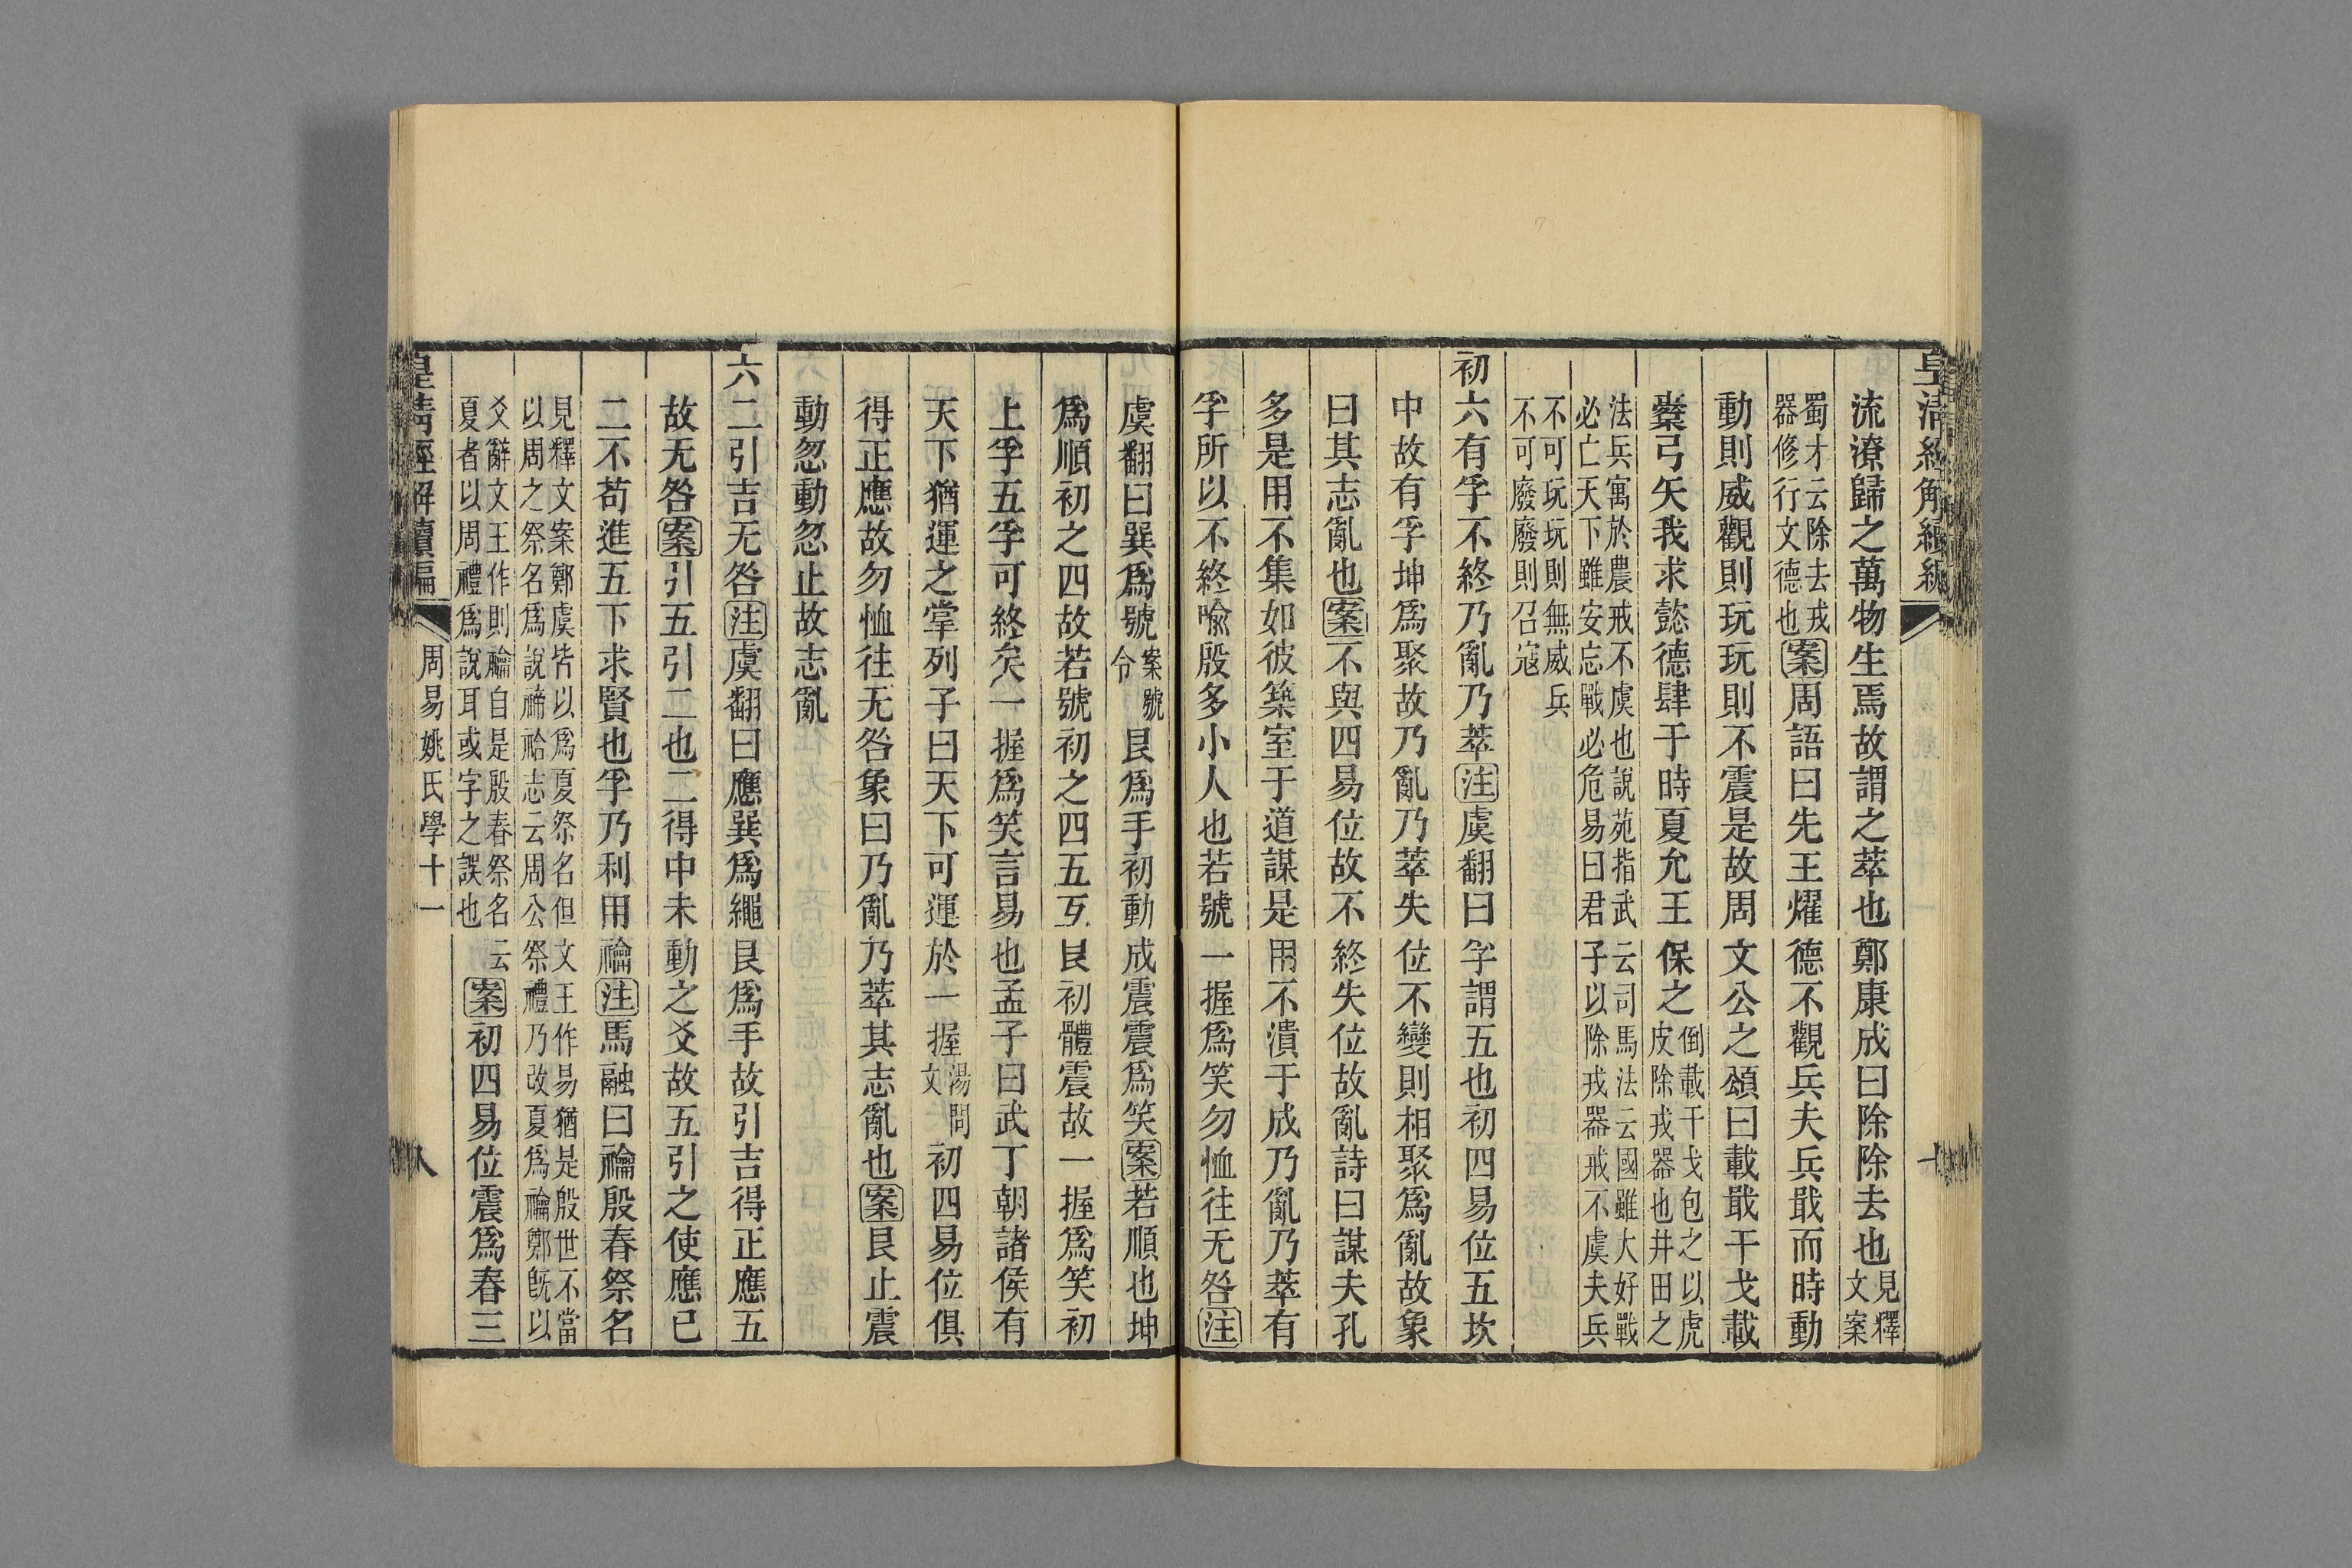 流潦歸之萬物生焉故謂之萃也鄭康成曰除除去也見釋文案
蜀才云除去戎器修行文德也案周語曰先王燿德不觀兵夫兵戢而時動
動則威觀則玩玩則不震是故周文公之頌曰載戢干戈載
櫜弓矢我求懿德肆于時夏允王保之倒載干戈包之以虎皮除戎器也井田之
法兵寓於農戒不虞也說苑指武云司馬法云國雖大好戰必亡天下雖安忘戰必危易曰君子以除戎器戒不虞夫兵
不可玩玩則無威兵不可廢廢則召寇
初六有孚不終乃亂乃萃注虞翻曰孚謂五也初四易位五坎
中故有孚坤爲聚故乃亂乃萃失位不變則相聚爲亂故象
曰其志亂也案不與四易位故不終失位故亂詩曰謀夫孔
多是用不集如彼築室于道謀是用不潰于成乃亂乃萃有
孚所以不終喻殷多小人也若號一握爲笑勿恤往无咎注
虞翻曰巽爲號案號令艮爲手初動成震震爲笑案若順也坤
爲順初之四故若號初之四五互艮初體震故一握爲笑初
上孚五孚可終矣一握爲笑言易也孟子曰武丁朝諸侯有
天下猶運之掌列子曰天下可運於一握湯問文初四易位俱
得正應故勿恤往无咎象曰乃亂乃萃其志亂也案艮止震
動忽動忽止故志亂
六二引吉无咎注虞翻曰應巽爲繩艮爲手故引吉得正應五
故无咎案引五引二也二得中未動之爻故五引之使應已
二不苟進五下求賢也孚乃利用禴注馬融曰禴殷春祭名
見釋文案鄭虞皆以爲夏祭名但文王作易猶是殷世不當以周之祭名爲說禘祫志云周公祭禮乃改夏爲禴鄭旣以
爻辭文王作則禴自是殷春祭名云夏者以周禮爲說耳或字之誤也案初四易位震爲春三
周易姚氏學十一